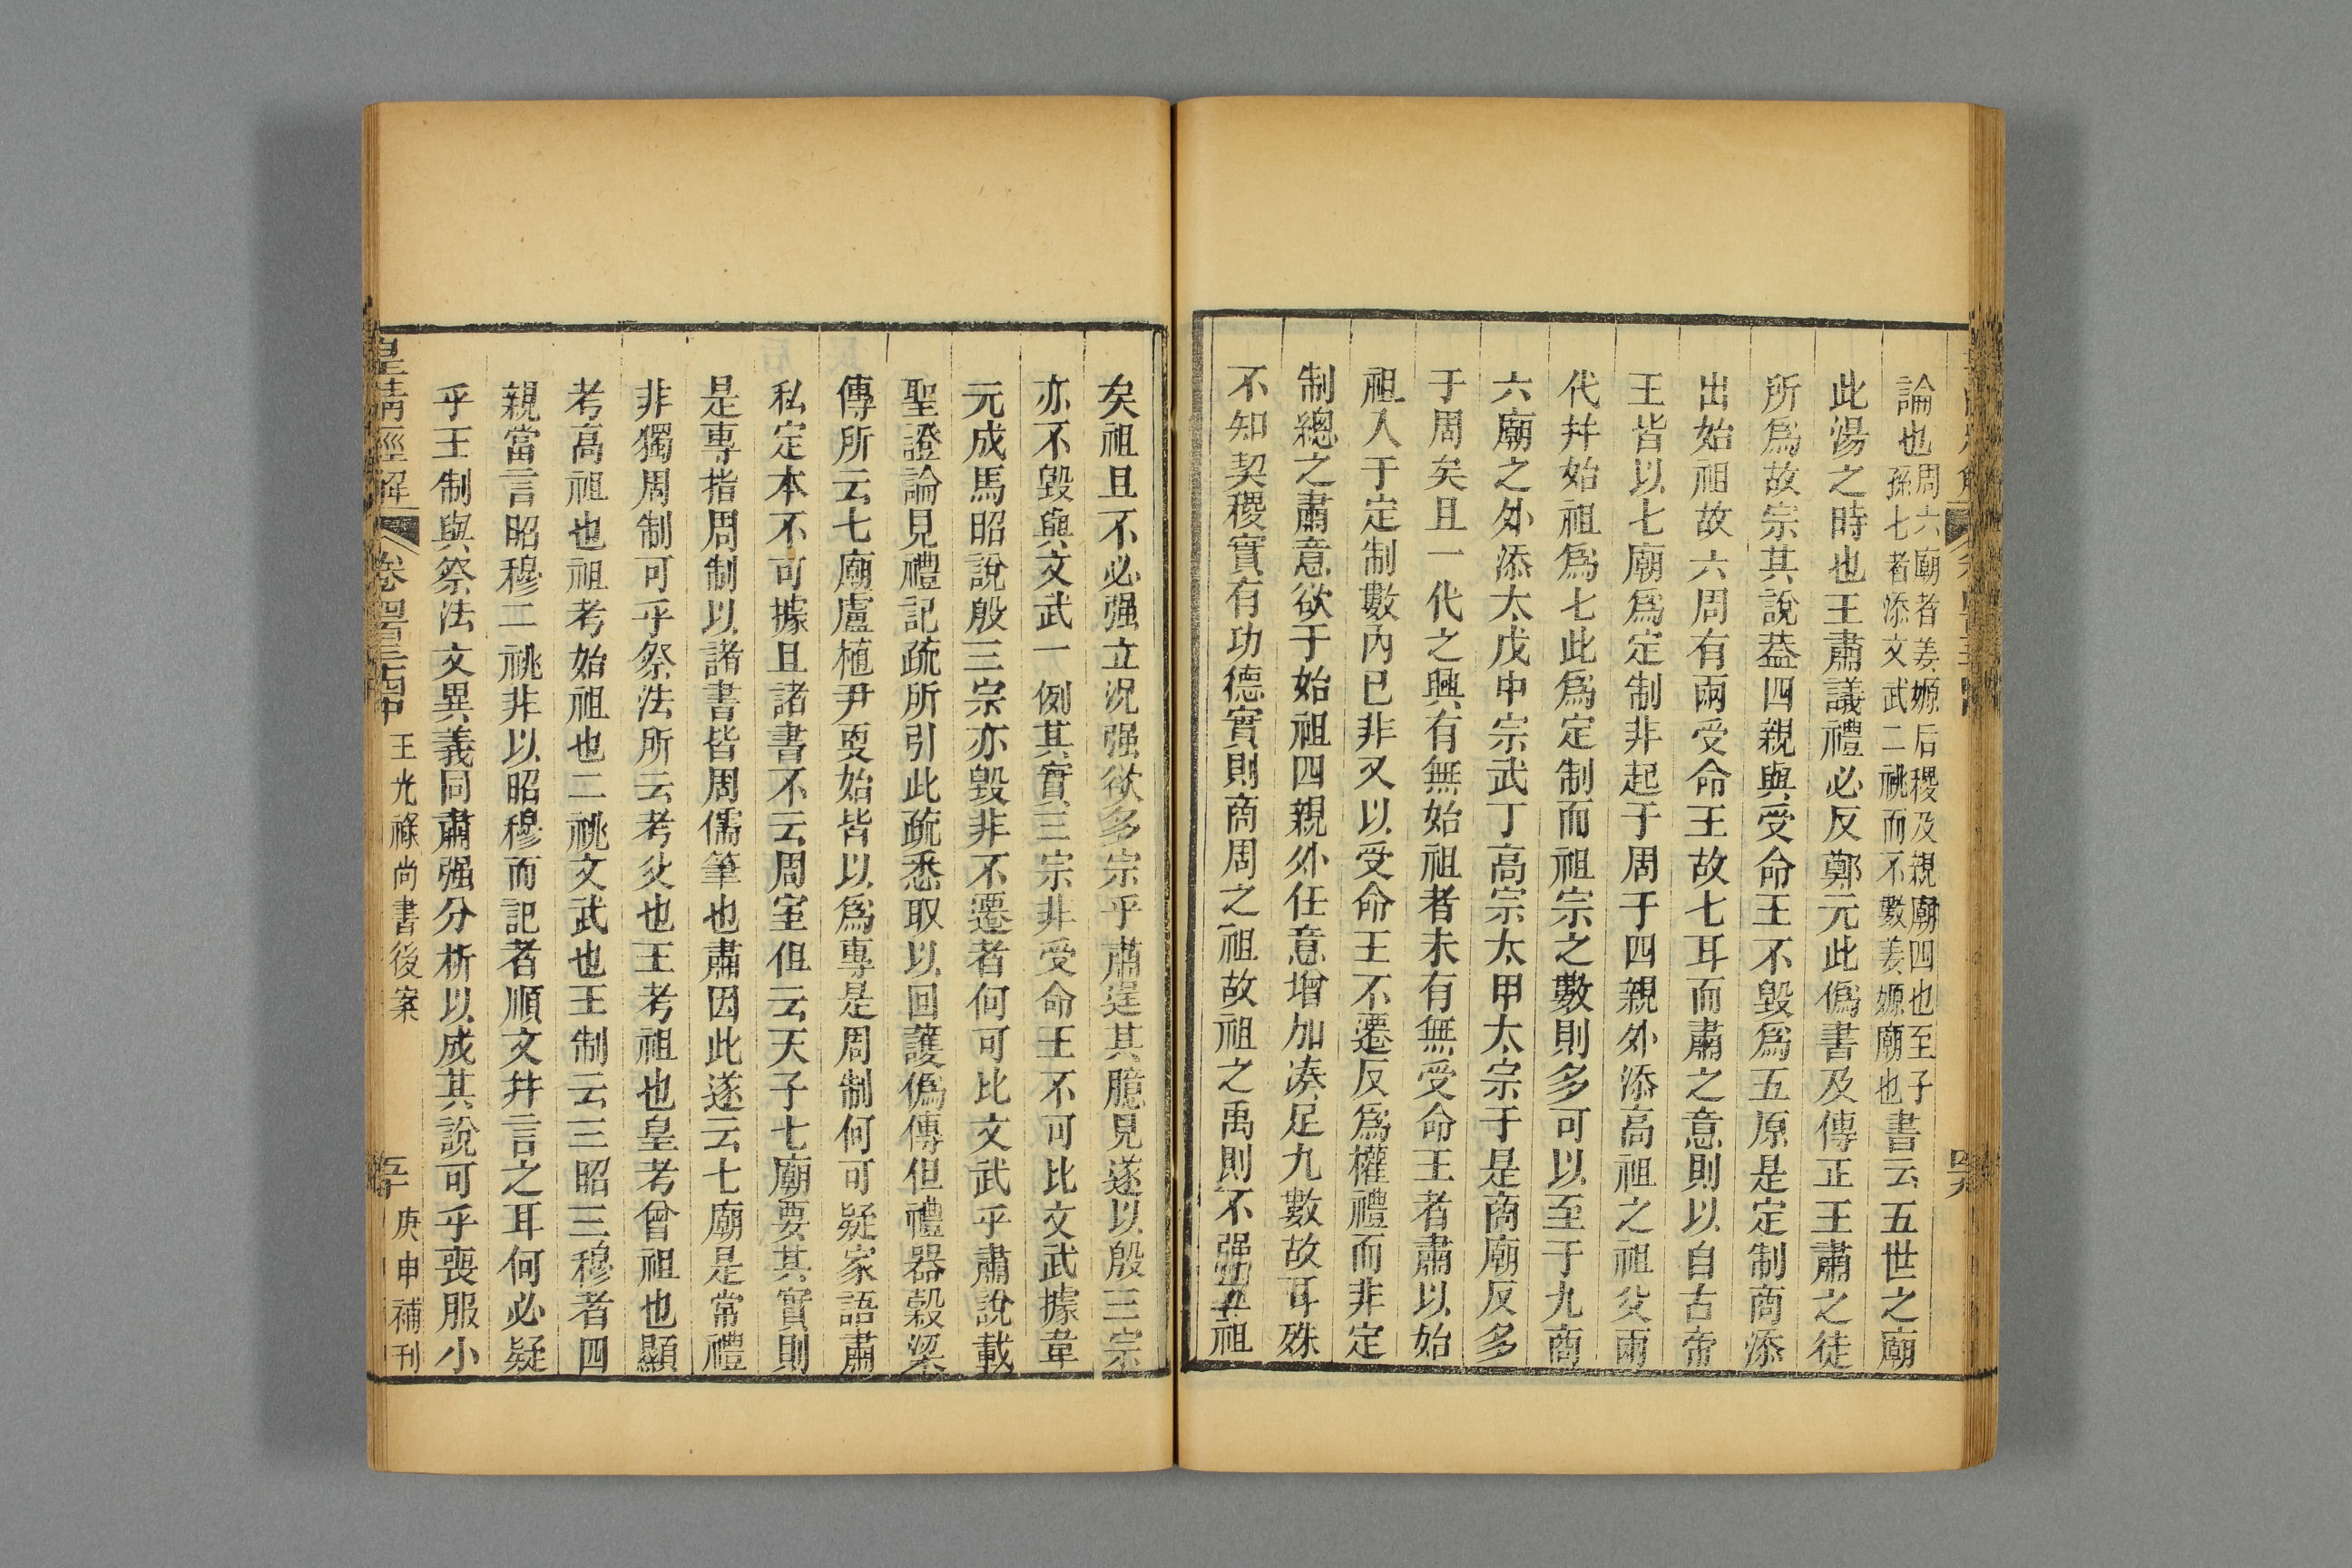 論也周六廟者姜嫄后稷及親廟四也至子孫七者添文武二祧而不數姜嫄廟也書云五世之廟
此湯之時也王肅議禮必反鄭元此偽書及傳正王肅之徒
所爲故宗其說葢四親與受命王不毀爲五原是定制商添
出始祖故六周有兩受命王故七耳而肅之意則以自古帝
王皆以七廟爲定制非起于周于四親外添高祖之祖父兩
代幷始祖爲七此爲定制而祖宗之數則多可以至于九商
六廟之外添太戊中宗武丁高宗太甲太宗于是商廟反多
于周矣且一代之興有無始祖者未有無受命王者肅以始
祖入于定制數內已非又以受命王不遷反爲權禮而非定
制總之肅意欲于始祖四親外任意增加湊足九數故耳殊
不知契稷實有功德實則商周之祖故祖之禹則不強立祖
矣祖且不必强立况强欲多宗乎肅逞其臆見遂以殷三宗
亦不毀與文武一例其實三宗非受命王不可比文武據韋
元成馬昭說殷三宗亦毀非不遷者何可比文武乎肅說載
聖證論見禮記疏所引此疏悉取以回護偽傳但禮器穀梁
傳所云七廟盧植尹更始皆以爲專是周制何可疑家語肅
私定本不可據且諸書不云周室但云天子七廟要其實則
是專指周制以諸書皆周儒筆也肅因此遂云七廟是常禮
非獨周制可乎祭法所云考父也王考祖也皇考曾祖也顯
考高祖也祖考始祖也二祧文武也王制云三昭三穆者四
親當言昭穆二祧非以昭穆而記者順文幷言之耳何必疑
乎王制與祭法文異義同肅强分析以成其說可乎喪服小
皇清經解 卷四百三十四中 王光祿尚書後案 至 庚申補刊